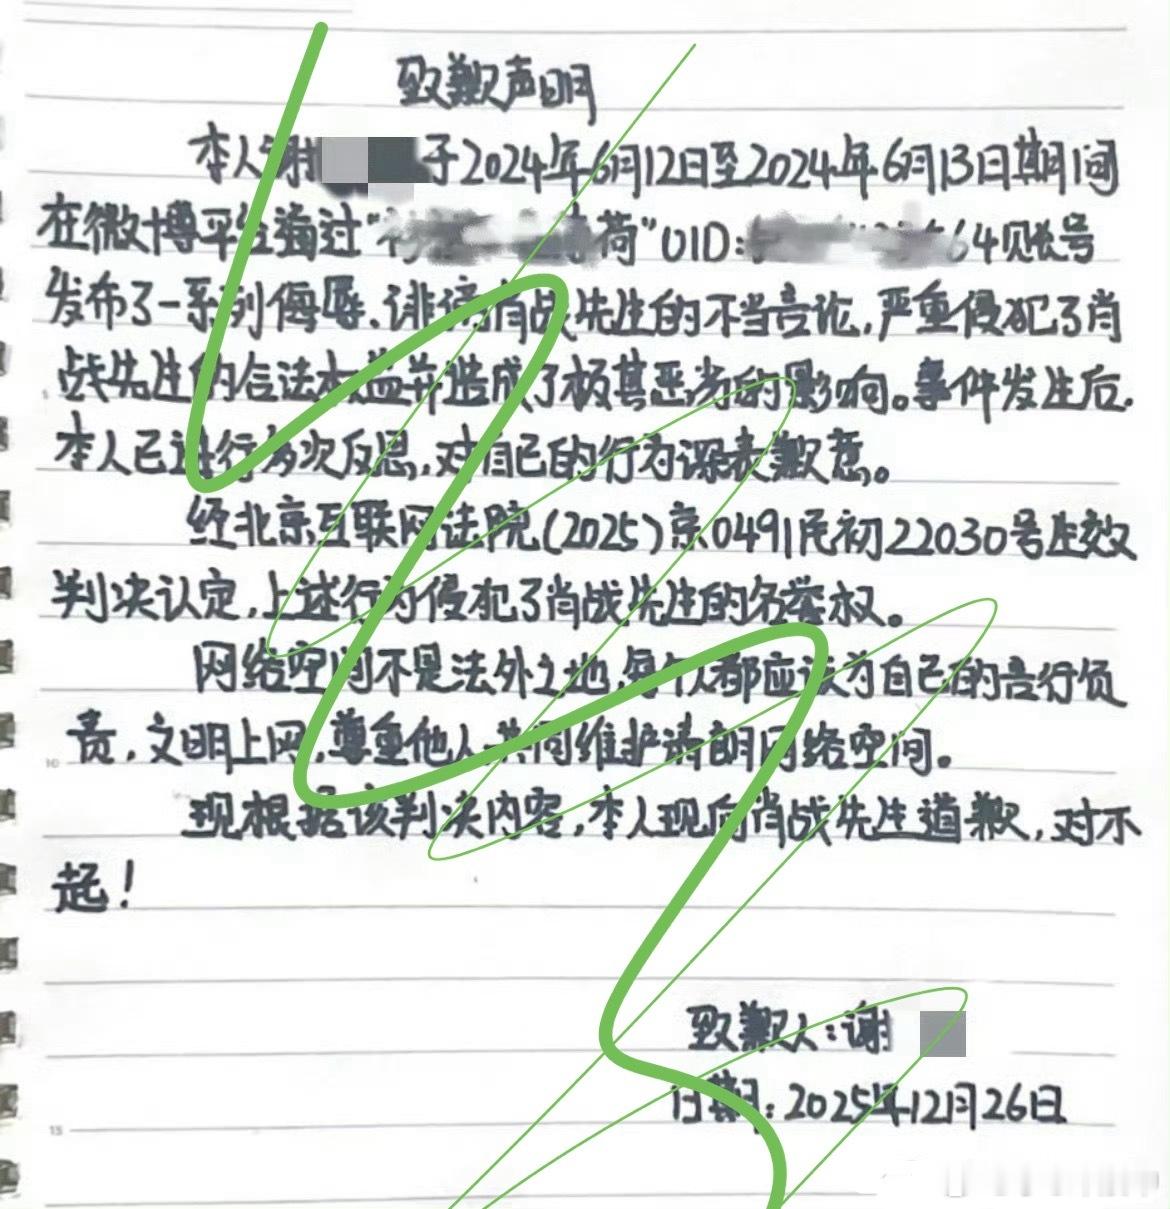 致歉声明
本人谢 于2024年6月12日至2024年6月13日期间
在微博平台通过“ 荷”UID: 64账号
发布了一系列侮辱、诽谤肖战先生的不当言论,严重侵犯了肖
战先生的合法权益并造成了极其恶劣的影响。事件发生后,
本人已进行多次反思,对自己的行为深表歉意。
经北京互联网法院(2025)京0491民初22030号生效
判决认定,上述行为侵犯了肖战先生的名誉权。
网络空间不是法外之地,每 都应该为自己的言行负
责,文明上网,尊重他人,共同维护清朗网络空间。
现根据该判决内容,本人现向肖战先生道歉,对不
起!
致歉人:谢
日期:2025年12月26日
10
15